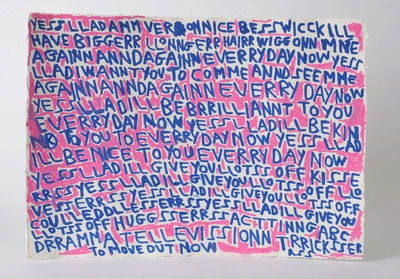 YESSLLADANN VERONNICE BESSWICCKILL
HAVE BIGGERR LLONNGERR HAIRR WIGG ONN MNE
AGAINN ANNDAGAINN EVERRYDAY NOW YESS
LLAD I WANNT YOU TO COMME ANND SEE MME
AGAINN ANNDAGAINN EVERRY DAY NOW
YESSLLAD ILL BE BRRILLIANNT TO YOU
EVERRYDAY NOW YESSLLAD ILL BE KIN
ND TO YOU TO EVERRY DAY NOW YESSLLAD
ILL BE NICE TO YOU EVERRY DAY NOW
YESSLLAD ILL GIVE YOU LLOTSS OFF KISSE
RRSS YESSLLAD ILL GIVE YOU LLOTSS OFF
ILL GIVE YOU
YESSLLAD ILL GIVE YOU
LLOTSS OFF HUGGSSERRSS ACTTINNG ABC
DRRAMMA TELLEVISSIONN TRRICKSSERR
RSS TO MOVE OUT NOW